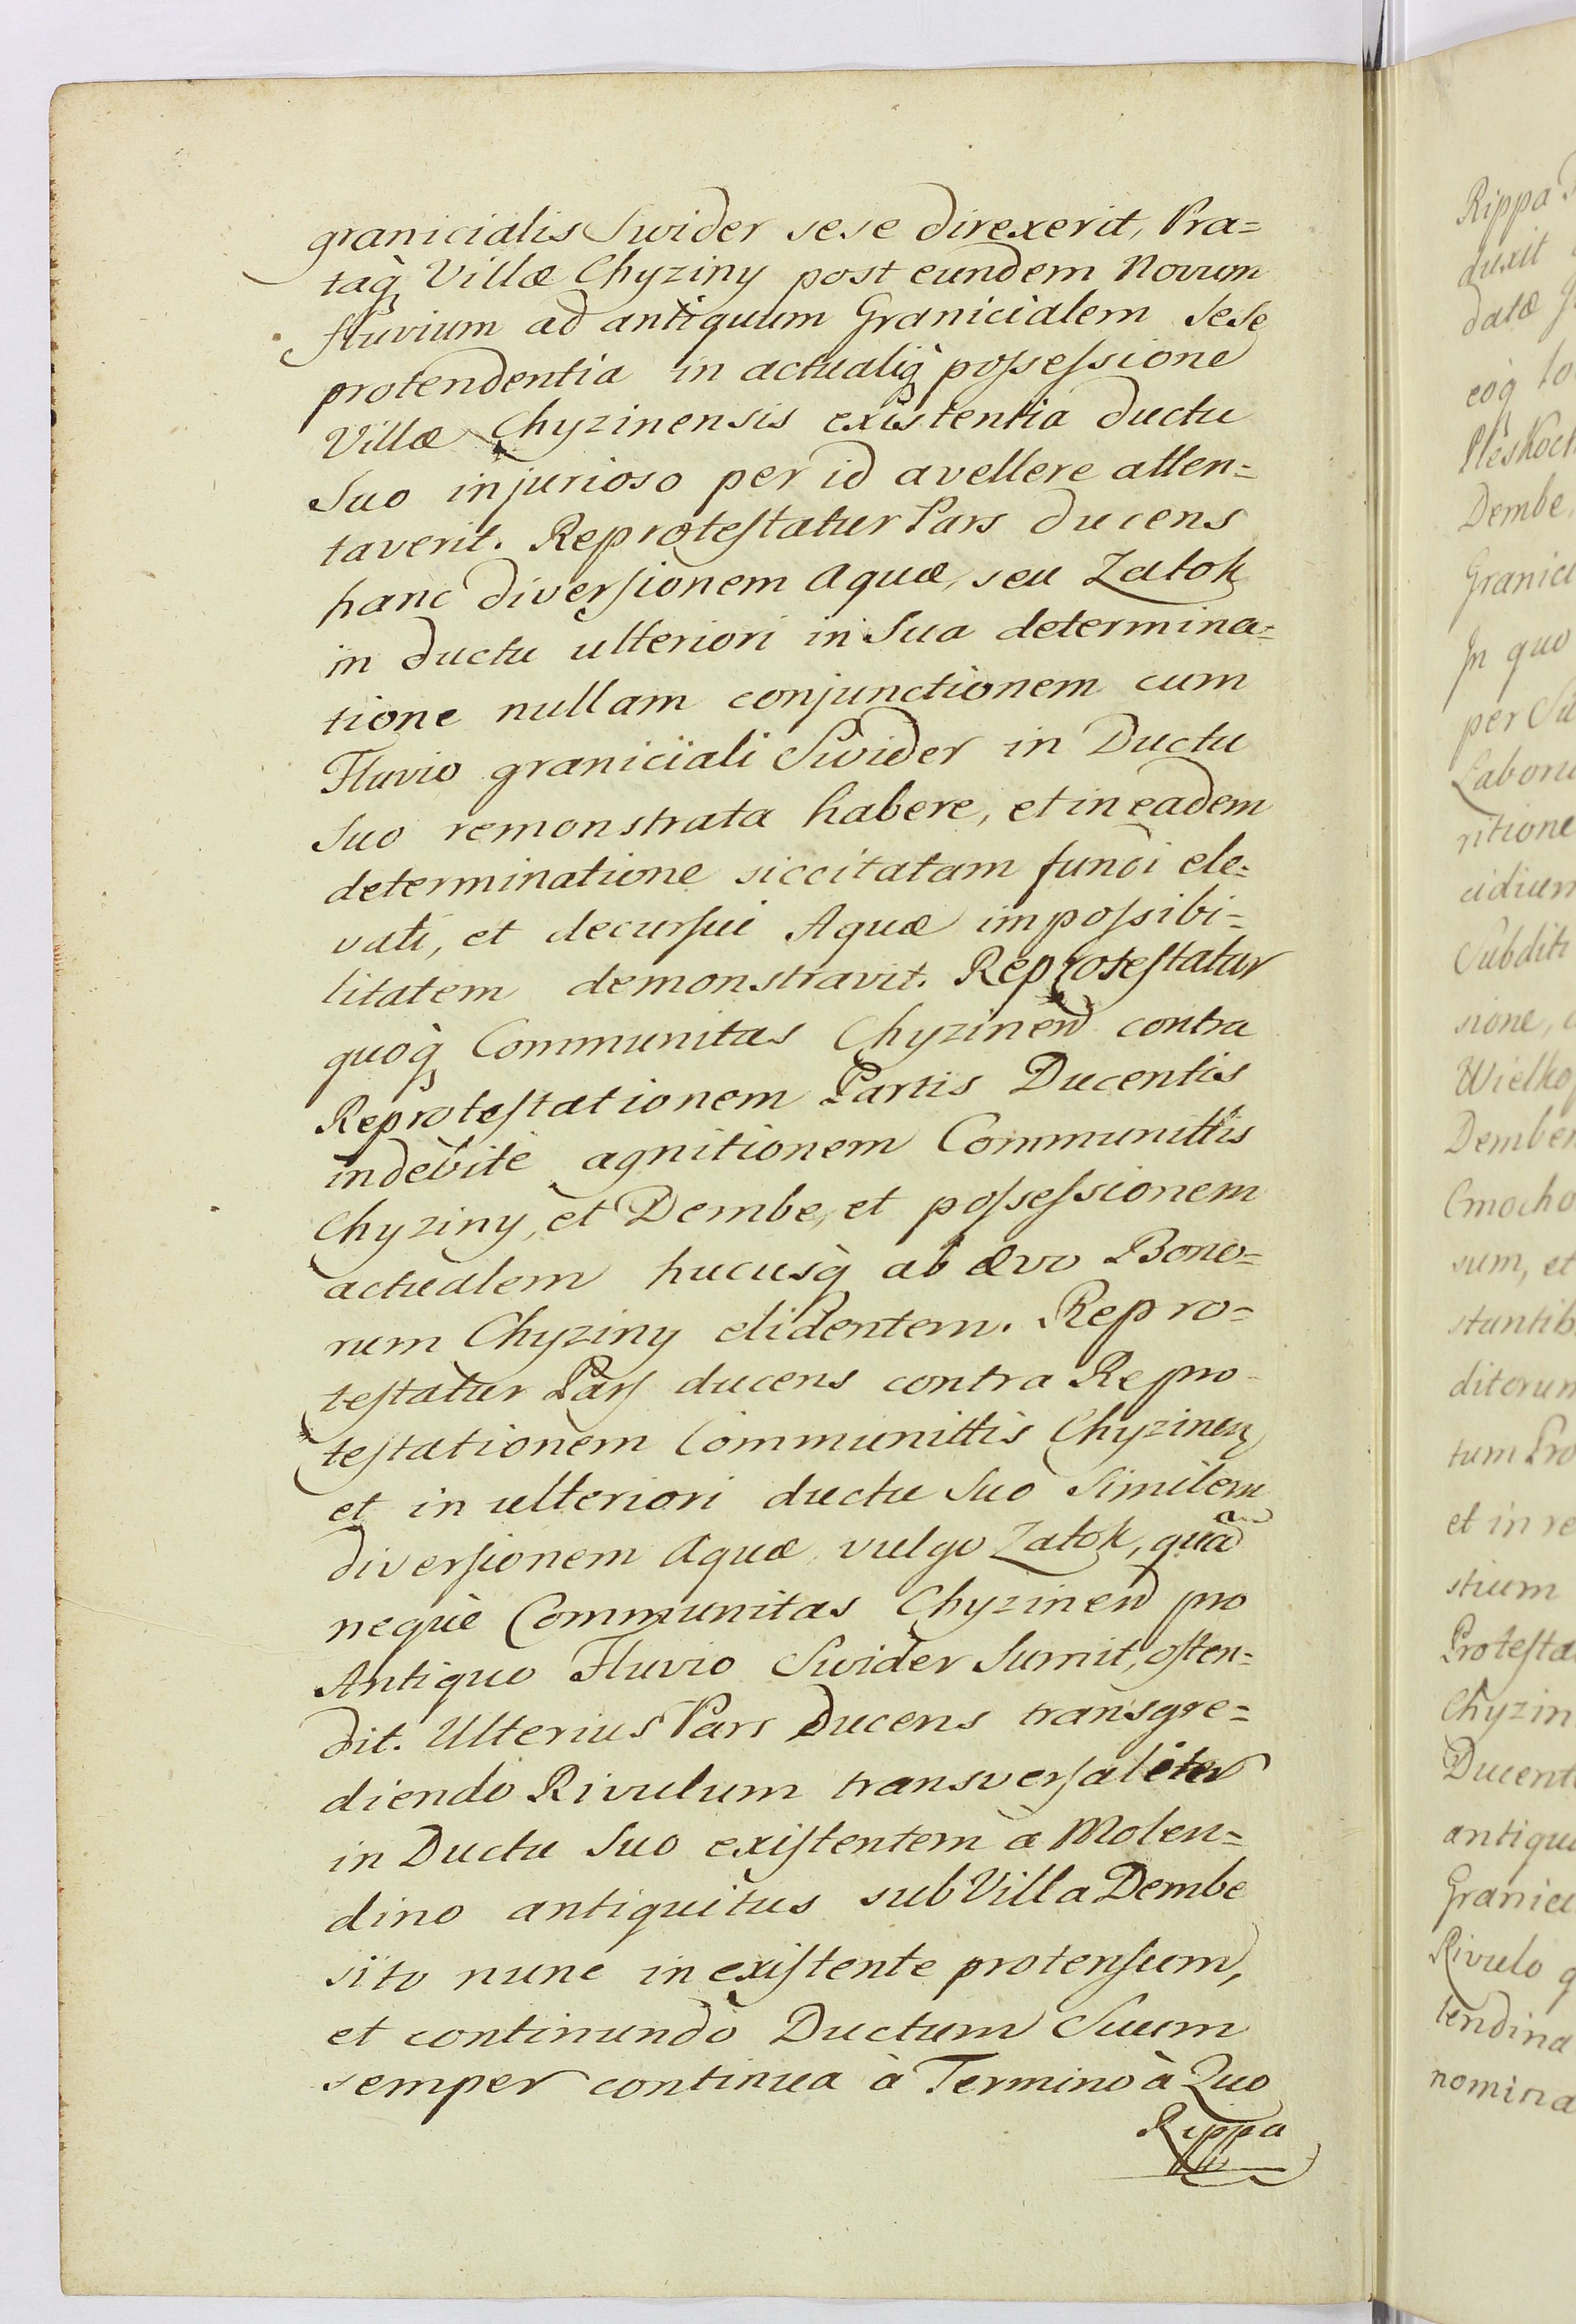 granicialis Swider sese direxerit, Pra=
taq̀ Villæ Chyziny post eundem Novum
fluvium ad antiquum Granicialem sese
protendentia in actualiq̀ poſseſsione
Villæ Chyzinensis existentia ductu
Suo injurioso per id avellere atten=
taverit. Reproteſtatur Pars ducens
hanc diverſionem Aquæ, seu Zatok
in ductu ulteriori in Sua determina=
tione nullam conjunctionem cum
Fluvio graniciali Swider in Ductu
Suo remonstrata habere, et in eadem
determinatione siccitatam fundi ele=
vati, et decurſui Aquæ impoſsibi=
litatem demonstravit. Reproteſtatur
quoq̀ Communitas Chyzinen contra
Reproteſtationem Partis Ducentis
indebitè agnitionem Communittis
Chyziny, et Dembe, et poſseſsionem
actualem hucusq̀ ab ævo Bono=
rum Chyziny elidentem. Repro=
teſtatur Parſ ducens contra Repro-
teſtationem Communittis Chyzinen
et in ulteriori ductu Suo Similem
diverſionem Aquæ vulgo Zatok, quã
nequè Communitas Chyzinen pro
Antiquo Fluvio Swider Sumit, oſten=
dit. Ulterius Pars Ducens transgre=
diendo Rivulum transverſaliter
in Ductu Suo exiſtentem à Molen=
dino antiquitus sub Villa Dembe
sito nunc inexiſtente protenſum,
et continundo Ductum Suum
semper continua à Termino à Quo
Rippa
Rippa
duxit
datæ
eoq̀
Dembe
In quo
per
ritione
Subditi
sione,
sum, et
tum
et in re
stium
Chyzin
Rivulo
tendina
nomina